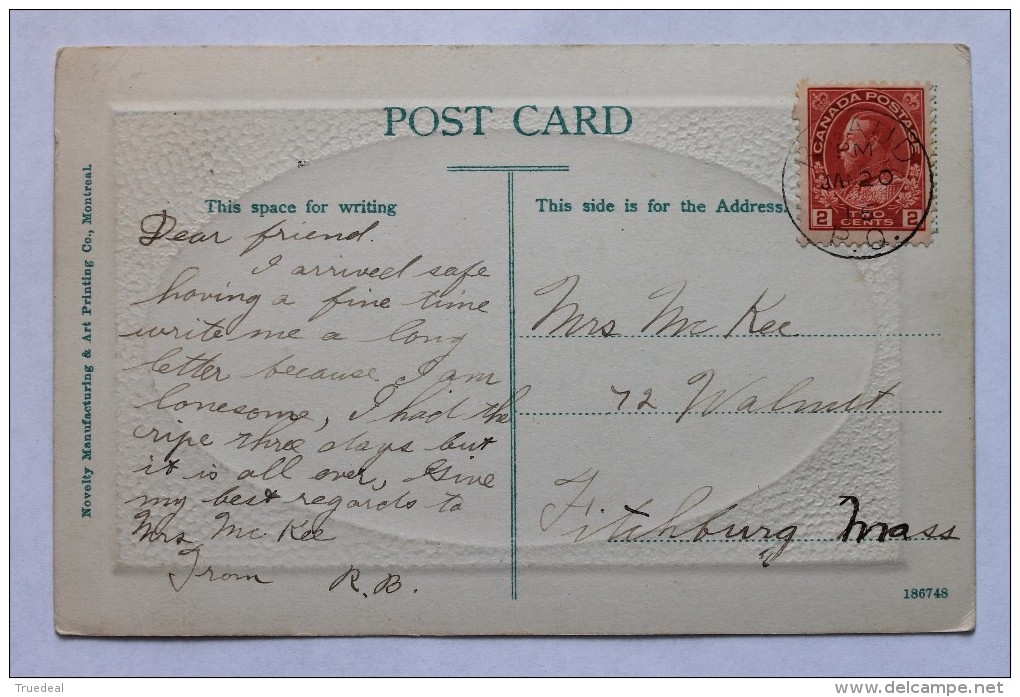 POST CARD
This space for writing
This side is for the Address.
Novelty Manufacturing & Art Printing Co., Montreal.
Dear friend.
I arrived safe
having a fine time
write me a long
letter because I am
lonesome, I had the
gripe three days but
it is all over, Give
my best regards to
Mrs Mc Kee
From R.B.
Mrs Mc Kee
72 Walnut
Fitchburg Mass
186748
CANADA POSTAGE
2 TWO CENTS 2
PM
JA 20
P.Q.
Truedeal
delcampe.net